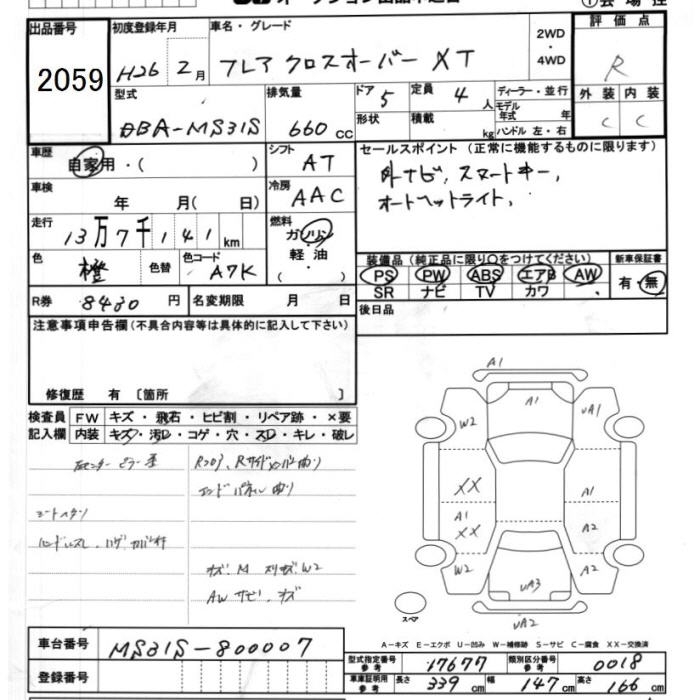 出品番号 初度登録年月 車名・グレード 2WD 評価点
2059 H26 2月 フレアクロスオーバー XT ・ 4WD R
型式 排気量 ドア 5 定員 4人 ディーラー・並行 外装 内装
DBA-MS31S 660cc 形状 積載 kg モデル年式 年 C C
ハンドル 左・右
車歴 シフト セールスポイント (正常に機能するものに限ります)
自家用・( ) AT 外ナビ、スマートキー、
車検 冷房 オートヘットライト、
年 月( 日) AAC
走行 燃料
13万7千141km ガソリン・軽油
色 色替 色コード ( ) 装備品 (純正品に限り○をつけてください) 新車保証書
橙 A7K PS PW ABS エアB AW 有・無
SR ナビ TV カワ
R券 8430円 名変期限 月 日 後日品
注意事項申告欄 (不具合内容等は具体的に記入して下さい)
修復歴 有 〔箇所 〕
検査員 FW キズ・飛石・ヒビ割・リペア跡・×要
記入欄 内装 キズ・汚レ・コゲ・穴・スレ・キレ・破レ
エンドパネル曲り
キズ、M スリキズ W2
AW サビ、キズ
A1
A1
W2 UA1
XX A1
A1
XX A2
W2 A2
UA3
UA2
スペア
A-キズ E-エクボ U-凹み W-補修跡 S-サビ C-腐食 XX-交換済
車台番号 MS31S-800007
型式指定番号 参考 17677 類別区分番号 参考 0018
登録番号 車庫証明用 参考 長さ 339cm 幅 147cm 高さ 166cm